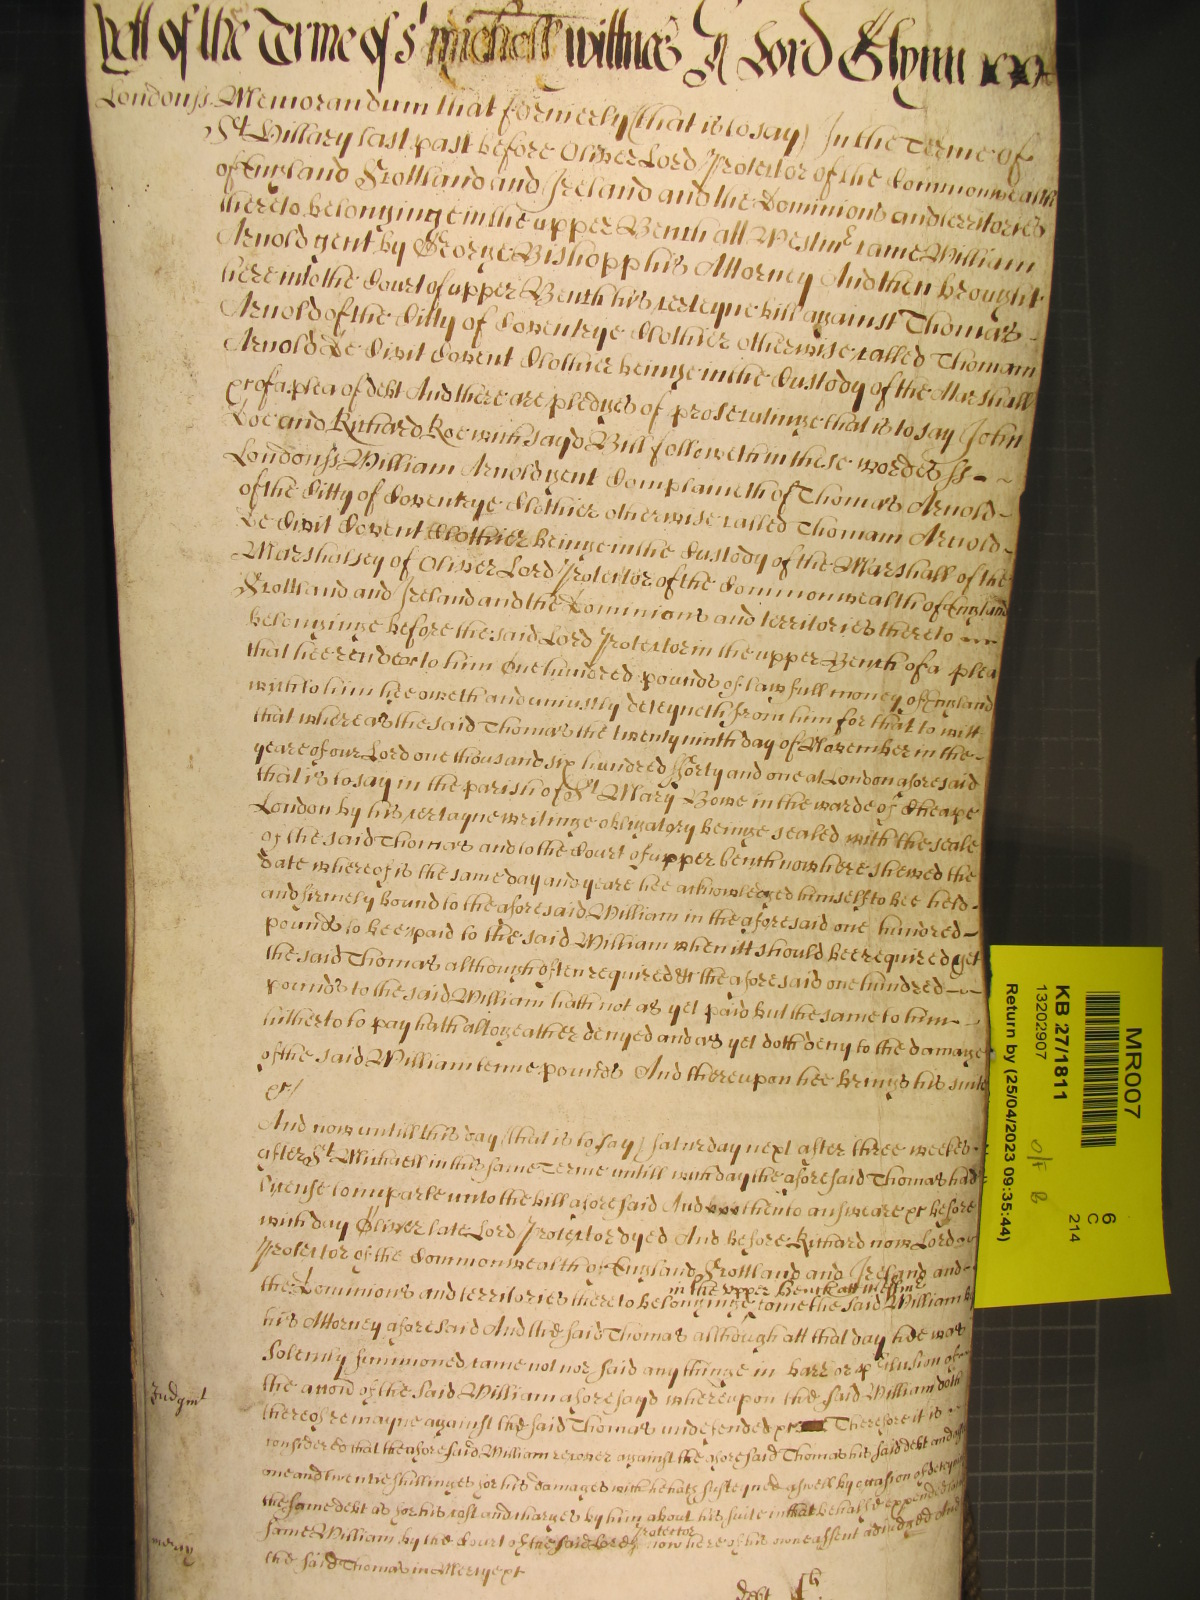 yett of the Terme of St Michaell wittnes Jn Lord Glynn
Londonss. Memorandum that formerly (that is to say) In the Terme of
St Hillary last past before Oliver Lord Protector of the Commonwealth
of England Scottland and Ireland and the Dominions and territories
thereto belonginge in the upper Bench att Westmr came William
Arnold gent by George Bishopp his Attorney And then brought
here into the Court of upper Bench his certeyne bill against Thomas
Arnold of the Citty of Coventrye Clothier otherwise called Thomam
Arnold De Civit Covent Clothier beinge in the Custody of the Marshall
&c of a plea of debt And there are pledges of prosecutinge that is to say John
Doe and Richard Roe which sayd Bill followeth in these wordes ss
Londonss William Arnold gent Complaineth of Thomas Arnold
of the Citty of Coventrye Clothier otherwise called Thomam Arnold
De Civit Covent Clothier beinge in the Custody of the Marshall of the
Marshalsey of Oliver Lord Protector of the Commonwealth of England
Scottland and Ireland and the Dominions and territories thereto
belonginge before the said Lord Protector in the upper Bench of a plea
that hee render to him One hundred pounds of lawfull money of England
which to him hee oweth and uniustly deteyneth from him for that to witt
that whereas the said Thomas the twenty ninth day of November in the
yeare of our Lord one thousand six hundred fforty and one at London aforesaid
that is to say in the parish of St Mary Bowe in the warde of Cheape
London by his certayne writinge obligatory beinge sealed with the seale
of the said Thomas and to the Court of upper bench now here shewed the
date whereof is the same day and yeare hee acknowledged himself to bee held
and firmely bound to the aforesaid William in the aforesaid one hundred
pounds to bee paid to the said William when itt should bee required yet
the said Thomas although often required &c the aforesaid one hundred
pounds to the said William hath not as yet paid but the same to him
hitherto to pay hath altogeather denyed and as yet doth deny to the damage
of the said William tenne pounds And thereupon hee brings his suite
&c/
And now untill this day (that is to say) Saturday next after three weekes
after St Michaell in this same Terme untill which day the aforesaid Thomas had
lycense to imparle unto the bill aforesaid And then to answeare &c before
which day Oliver late Lord Protector dyed And before Richard now Lord
Protector of the Commonwealth of England Scottland and Ireland and
in the upper Bench att Westmr
the Dominions and territories thereto belonginge come the said William by
his Attorney aforesaid And the said Thomas although att that day hee was
Solemly summoned came not nor said any thinge in barr or pclusion of
Judgmt
the accon of the said William aforesayd whereupon the said William doth
thereof remayne against the said Thomas undefended &c Therefore it is
considered that the aforesaid William recover against the aforesaid Thomas his said debt and
one and twentie shillinges for his damages which hee hath susteyned aswell by occasion of deteyninge
the same debt as for his cost and charges by him about his suite in that behalfe expended to the
Protector
same William by the Court of the said Lord now here of his owne assent adiudged And
mercy
the said Thomas in Mercy &c
Debt Cli
MR007
KB 27/1811
13202907
Return by (25/04/2023 09:35:44)
6
C
214